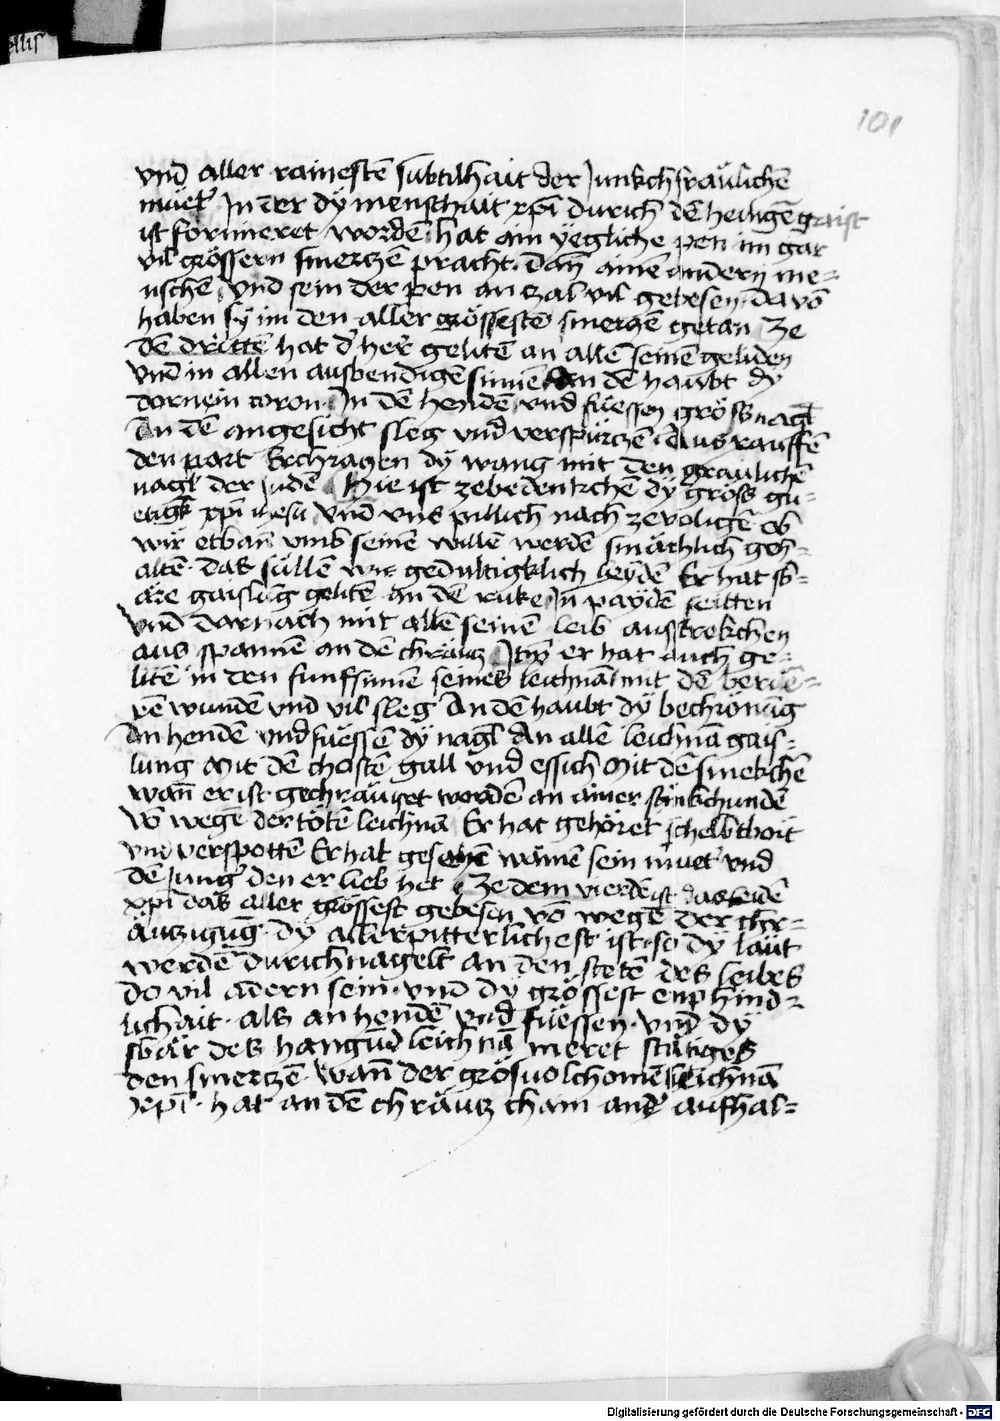 101
vnd aller rainestē subtilhait der Junkchfräulichē
muet͛ In der dÿ menschait xp̄i durich dē heiligē gaist
ist formieret wordē hat ain yegliche pen im gar
vil grössern smerczē pracht dan̄ ainē andern me=
nschen vnd sein der pen an zal vil gebesen da vō
haben sÿ im den aller grössestē smerczē getan Ze
dē drittē hat d͛ her͛ gelitē an allē seinē geliden
vnd in allen ausbendigē sinnē An dē haubt dÿ
dornein coron In dē hendē vnd füessen grösß nagl̄
An dē angesicht sleg vnd verspürczē Aus rauffē
den part Erchraczen dÿ wang mit den greulichē
nagl̄ der Judē Hie ist zebedenkchē dÿ gröss gu=
etigk xp̄i ihesu vnd vns pillich nach zevoligē ob
wir etban vmb seinē willē werdē smächlich geh=
altē das süllē wir gedultigklich leydē Er hat sb=
äre gaislūg gelitē An dē ruke In paydē seitten
vnd darnach mit allē seinē leib ausstrekchen
aus spannē an dē chräucz Itē er hat auch ge=
litē in den funf sinnē seines leichnā mit dē berüe=
rē wundē vnd vil sleg An dē haubt dÿ bechrönūg
An hendē vnd füessē dÿ nagl̄ An allē leichnā gais=
lung Mit dē chostē gall vnd essich Mit dē smekchē
wan̄ er ist gechräuczet wordē an ainer stinkchundē
vō wegē der tötē leichnā Er hat gehöret scheltboit
vnd verspottē Er hat gesehē wainē sein muet͛ vnd
dē Jung͛ den er lieb het Ze dem vierdē ist das leidē
xp̄i das aller grössest gebesen vō wegē der chr=
äuczigūg dÿ allerpitterlichest ist so dÿ läut
werdē durichnagelt an den stetē des leibes
do vil adern sein vnd dÿ grössest enphind=
lichait als an hendē vnd füessen vnd dÿ
sbär des hangūd leichnā meret stätiges
den smerczē wan̄ der grösvolchomē leichnā
xp̄i hat an dē chräucz cham and͛ aufhal=
Digitalisierung gefördert durch die Deutsche Forschungsgemeinschaft - DFG